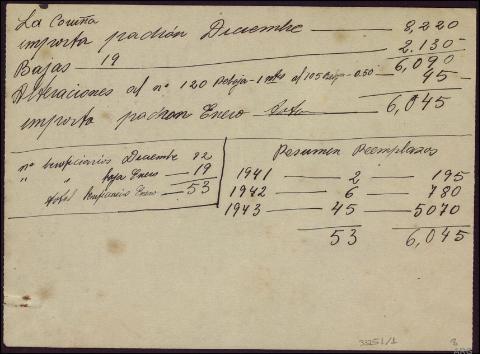 La Coruña
importa padrón Diciembre — 8,220
Bajas — 19 — 2.130-
6,090
Alteraciones al nº 120 Rebaja-1 al 105 Rebja-0.50- 45-
importa padron Enero 6,045
nº beneficiarios Diciembre 72
" " baja Enero — 19
total Beneficiarios Enero — 53
Resumen Reemplazos
1941 — 2 — 195
1942 — 6 — 780
1943 — 45 — 5070
53 6,045
33251/1